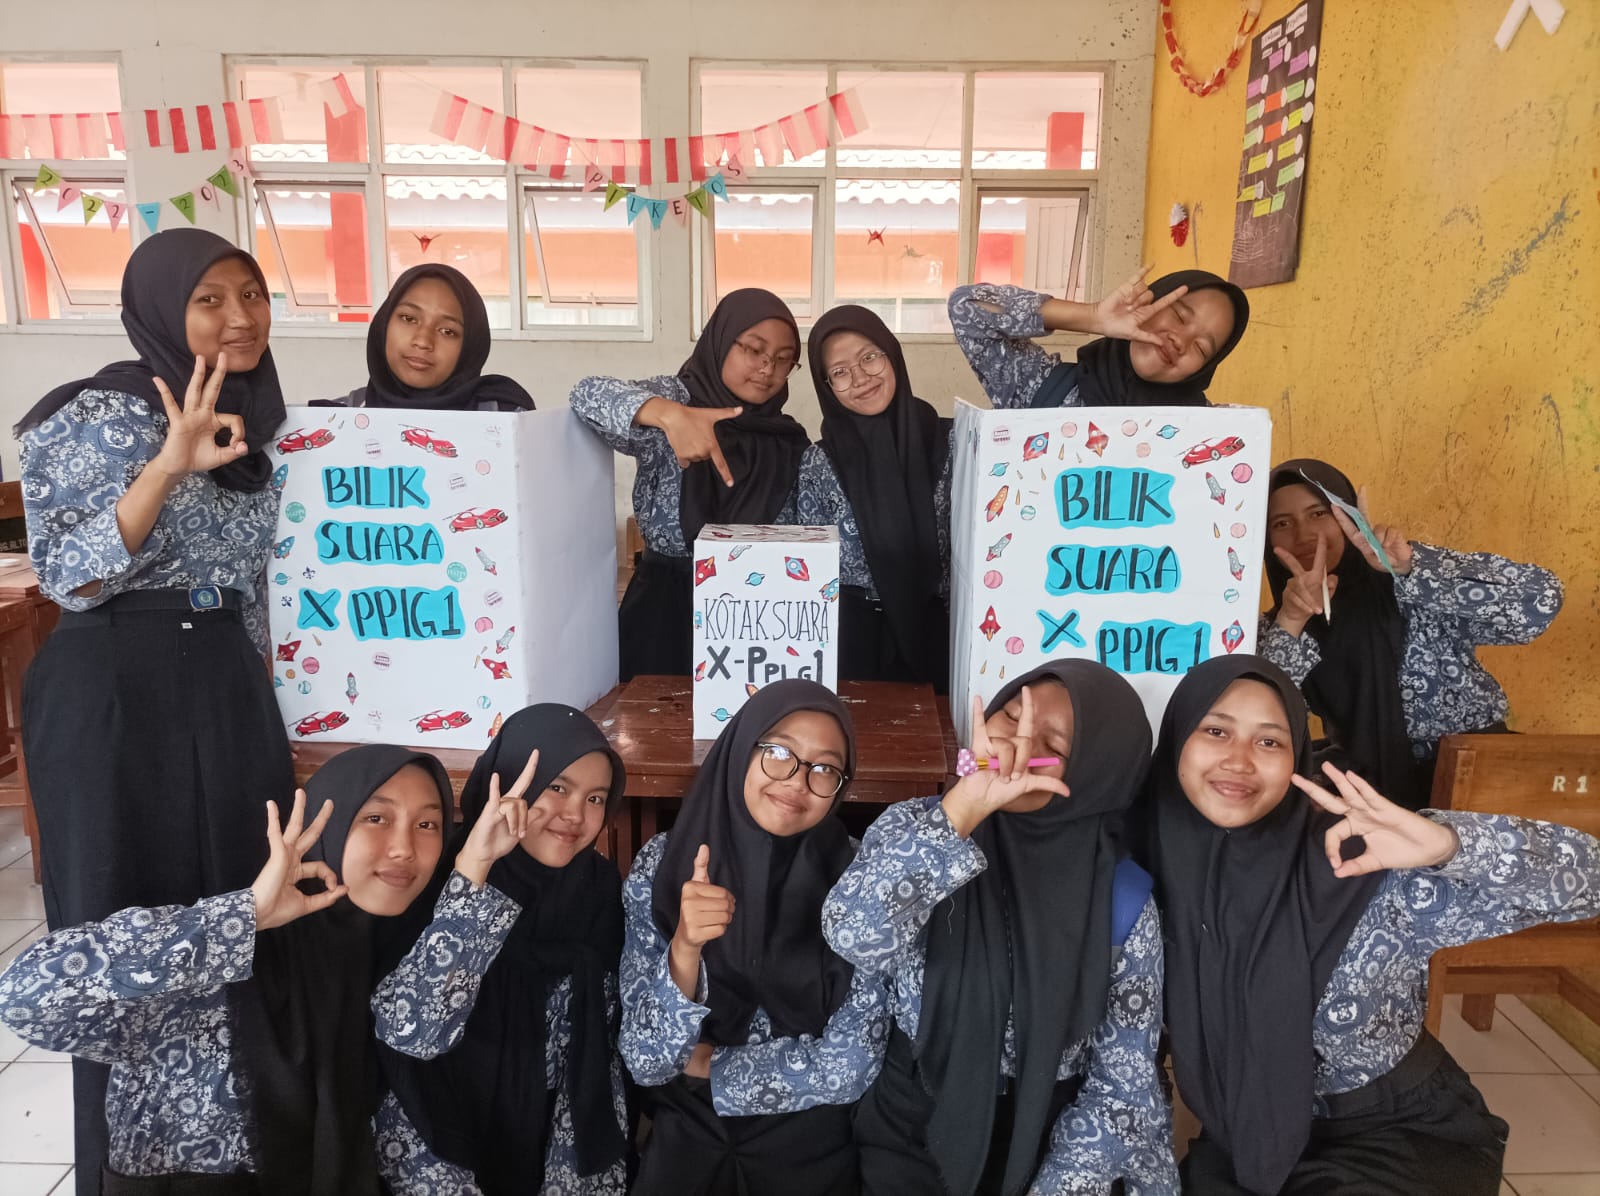 2022-2023
PILKETOS
BILIK
SUARA
X PPlG1
KOTAK SUARA
X-PPLG1
BILIK
SUARA
X PPlG1
R 1